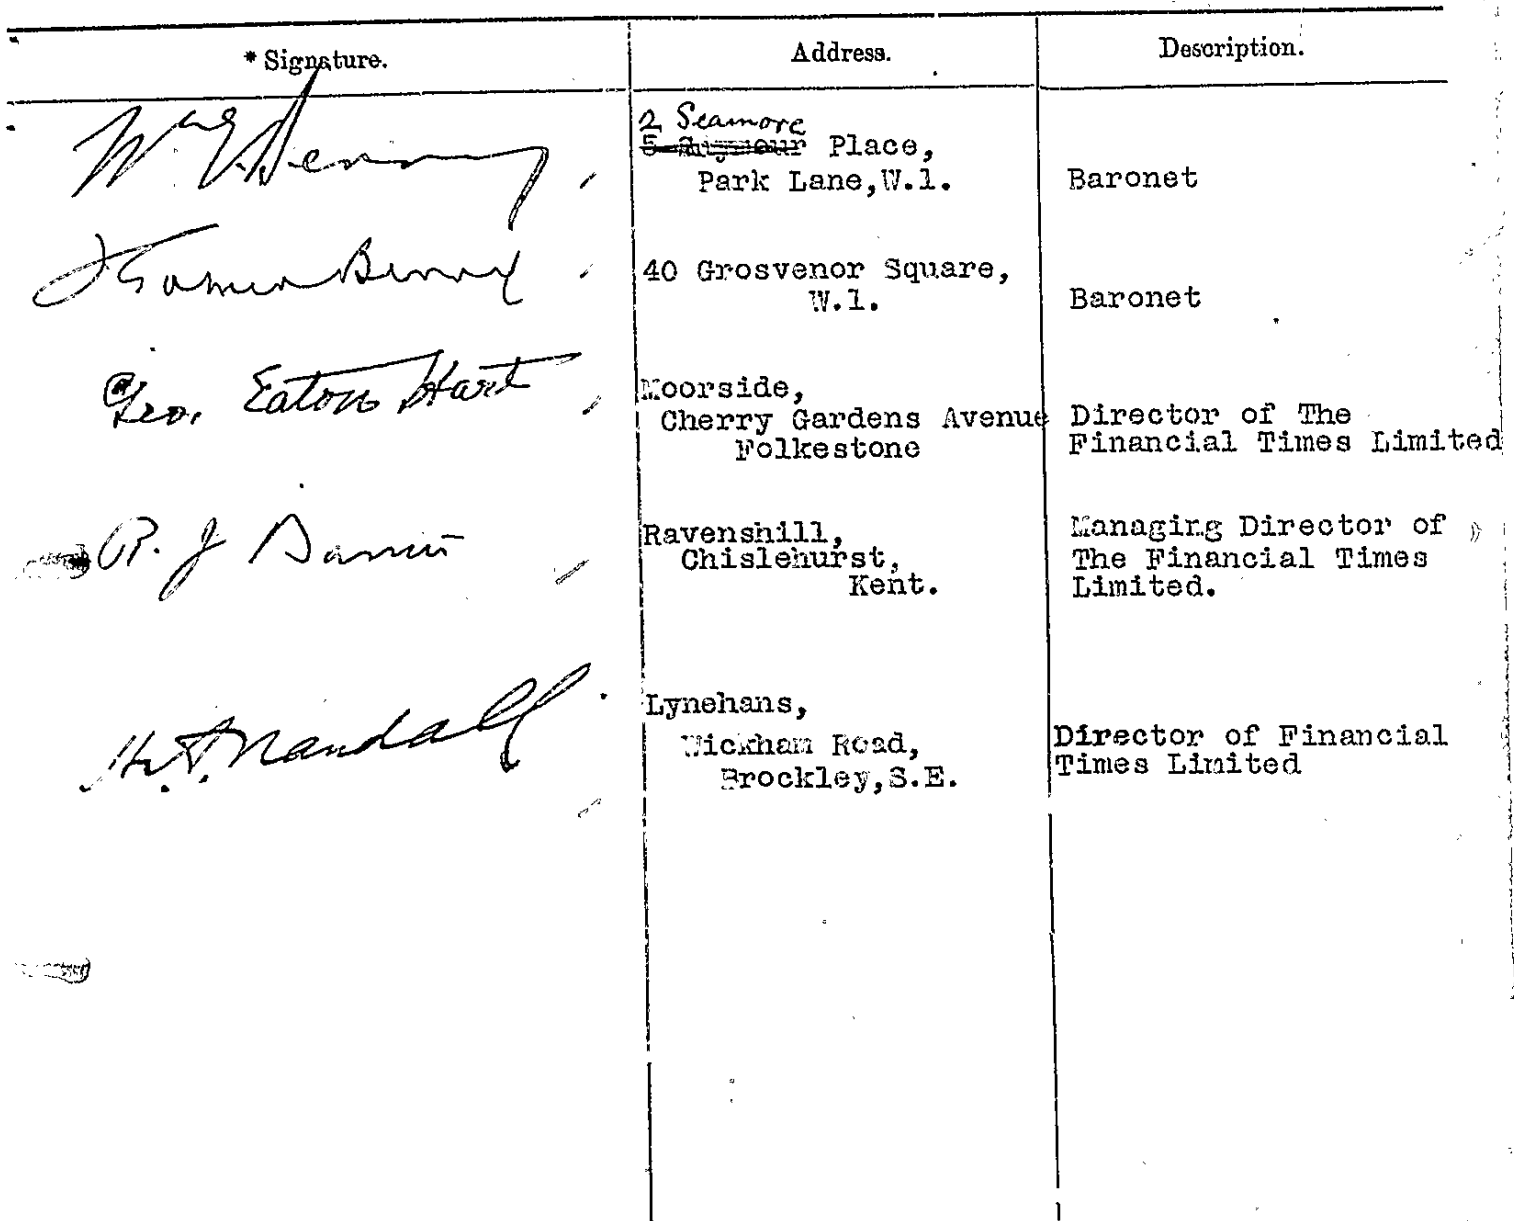 * Signature. Address. Description.
Wm E Berry
2 Seamore
5 Seymour Place,
Park Lane,W.1.
Baronet
J Gomer Berry
40 Grosvenor Square,
W.1.
Baronet
Geo. Eaton Hart
Moorside,
Cherry Gardens Avenue
Folkestone
Director of The
Financial Times Limited
R. J
Ravenshill,
Chislehurst,
Kent.
Managing Director of
The Financial Times
Limited.
Randall
Lynehans,
Wickham Road,
Brockley,S.E.
Director of Financial
Times Limited